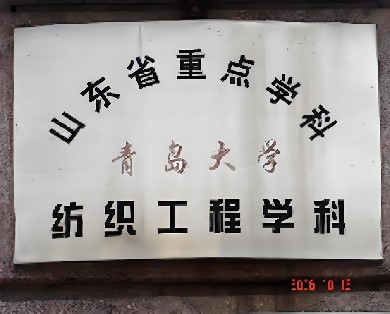 山东省重点学科
青岛大学
纺织工程学科